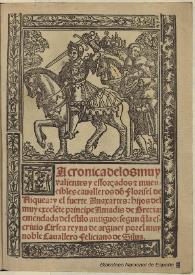 La cronica de los muy
valientes y esforçados e inuen
cibles caualleros dō Florisel de
Niquea: y el fuerte Anaxartes: hijos del
muy excelēte principe Amadis de Grecia:
emendada del estilo antiguo: segun que la es
criuio Cirfea reyna de argines por el muy
noble Cauallero Feliciano de Silua.
Biblioteca Nacional de España